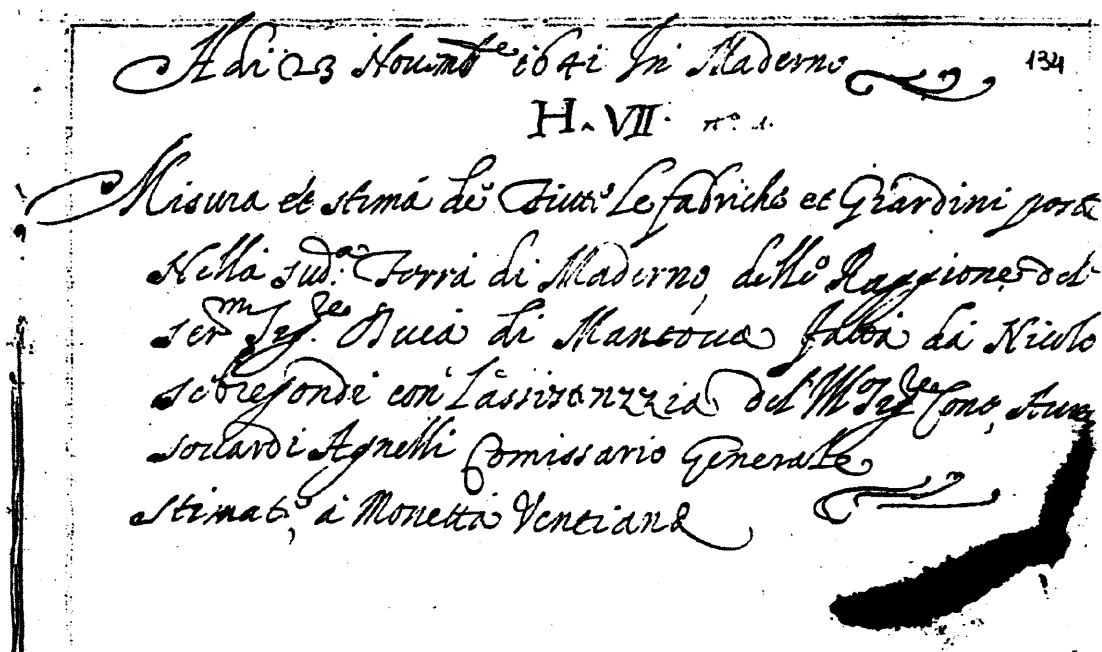 Adi 23 Novembe 1641 In Maderno
134
H. VII. n.º 1.
Misura et stima de Tutti Le fabriche et Giardini poste
Nella sud.a Terra di Maderno, delle Raggione del
Serm Sigre. Duca di Mantova fatta da Nicolo
Sebregondi con Lassistenzzia del M Sigre Conte
Soccardi Agnelli Comissario Generale
stimate, a Monetta Venetiana